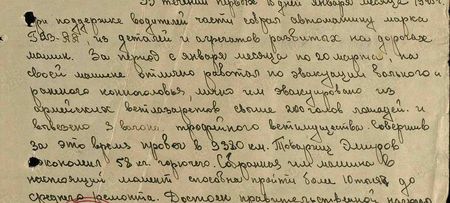 В течении первых 10 дней января месяца 1945 г.
при поддержке водителей части собрал автомашину марка
ГАЗ-АА из деталей и агрегатов разбитых на дорогах
машин. За период с января месяца по 20 марта, на
своей машине отлично работал по эвакуации больного и
раненого конпоголовья, лично им эвакуировано из
армейских ветлазаретов свыше 200 голов лошадей. и
вывезено 3 вагона, трофейного ветимущества. Совершив
за это время пробег в 9380 клм. Товарищ
экономил 58 кг. горючего. Собранная им машина в
настоящий момент способна пройти более 10 тысяч до
среднего ремонта. Достоин правительственной награды